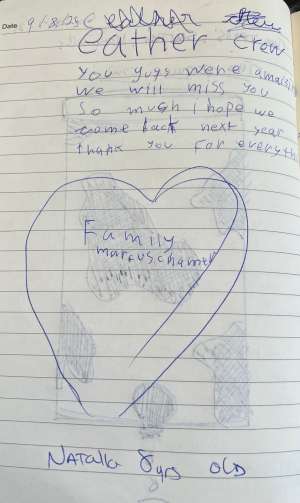 Date
eather crew
You guys were amaizi
We will miss you
So much I hope we
come back next year
thank you for everyth
Family
marcus chamel
NATALIA 8 yrs OLD